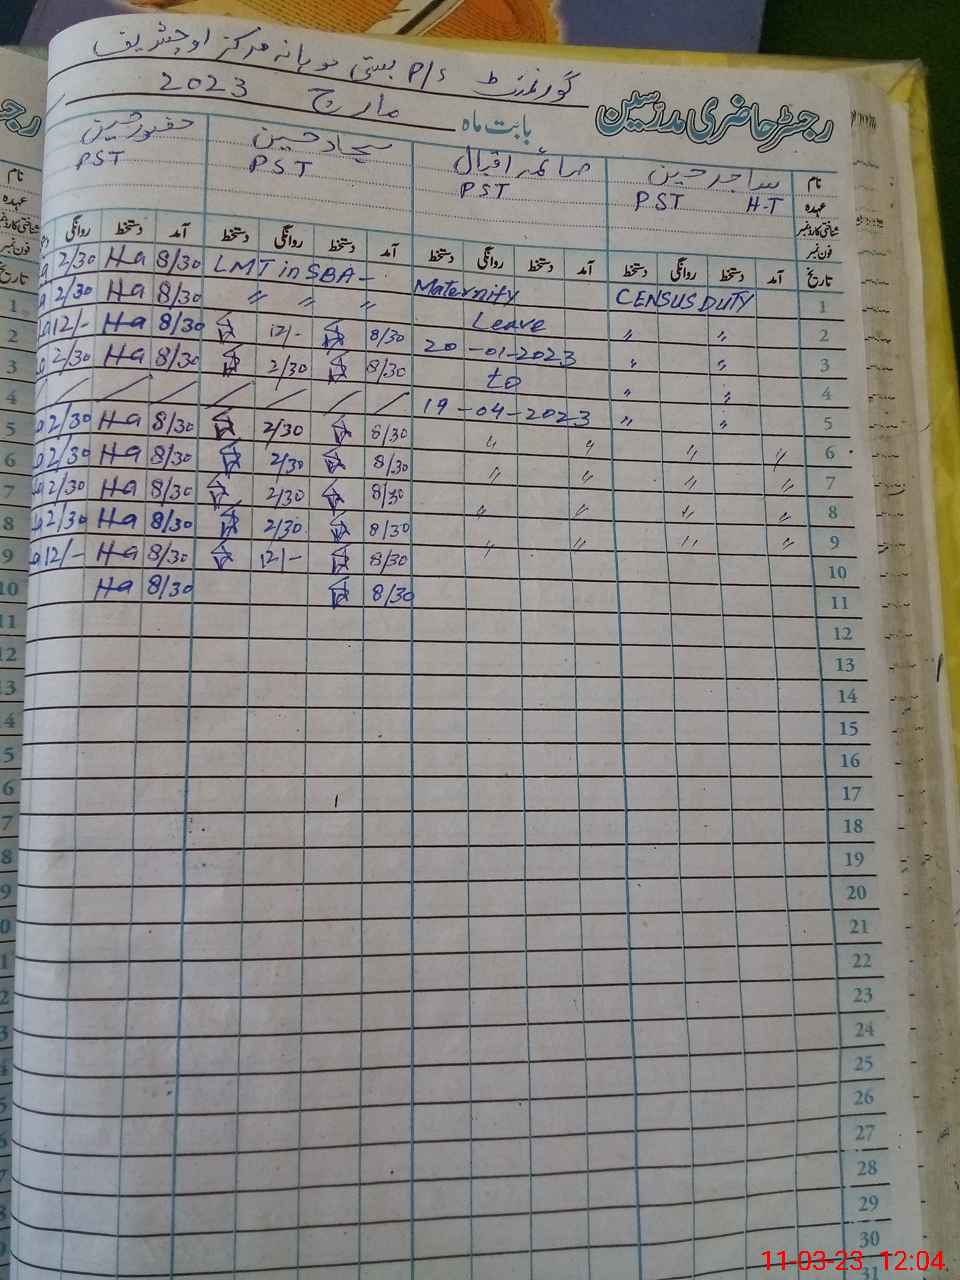 گورنمنٹ P/S بستی موہانہ مرکز اوچشریف
رجسٹر حاضری مدرسین بابت ماہ مارچ 2023
نام ساجد حسین صائمہ اقبال سجاد حسین
عہدہ PST H-T PST PST PST
شناختی کارڈ نمبر
فون نمبر
تاریخ آمد دستخط روانگی دستخط آمد دستخط روانگی دستخط آمد دستخط روانگی دستخط آمد دستخط روانگی
1 CENSUS DUTY Maternity LMT in SBA - 8/30 Ha 2/30
2 " " Leave " " " 8/30 Ha 2/30
3 " " 20-01-2023 8/30 12/- 8/30 Ha 12/-
4 " " to 8/30 2/30 8/30 Ha 2/30
5 " " 19-04-2023 / / / / / / /
6 " " " " 8/30 2/30 8/30 Ha 2/30
7 " " " " 8/30 2/30 8/30 Ha 2/30
8 " " " " 8/30 2/30 8/30 Ha 2/30
9 " " " " 8/30 2/30 8/30 Ha 2/30
10 8/30 12/- 8/30 Ha 12/-
11 8/30 8/30 Ha
12
13
14
15
16
17
18
19
20
21
22
23
24
25
26
27
28
29
30
31
11-03-23 12:04